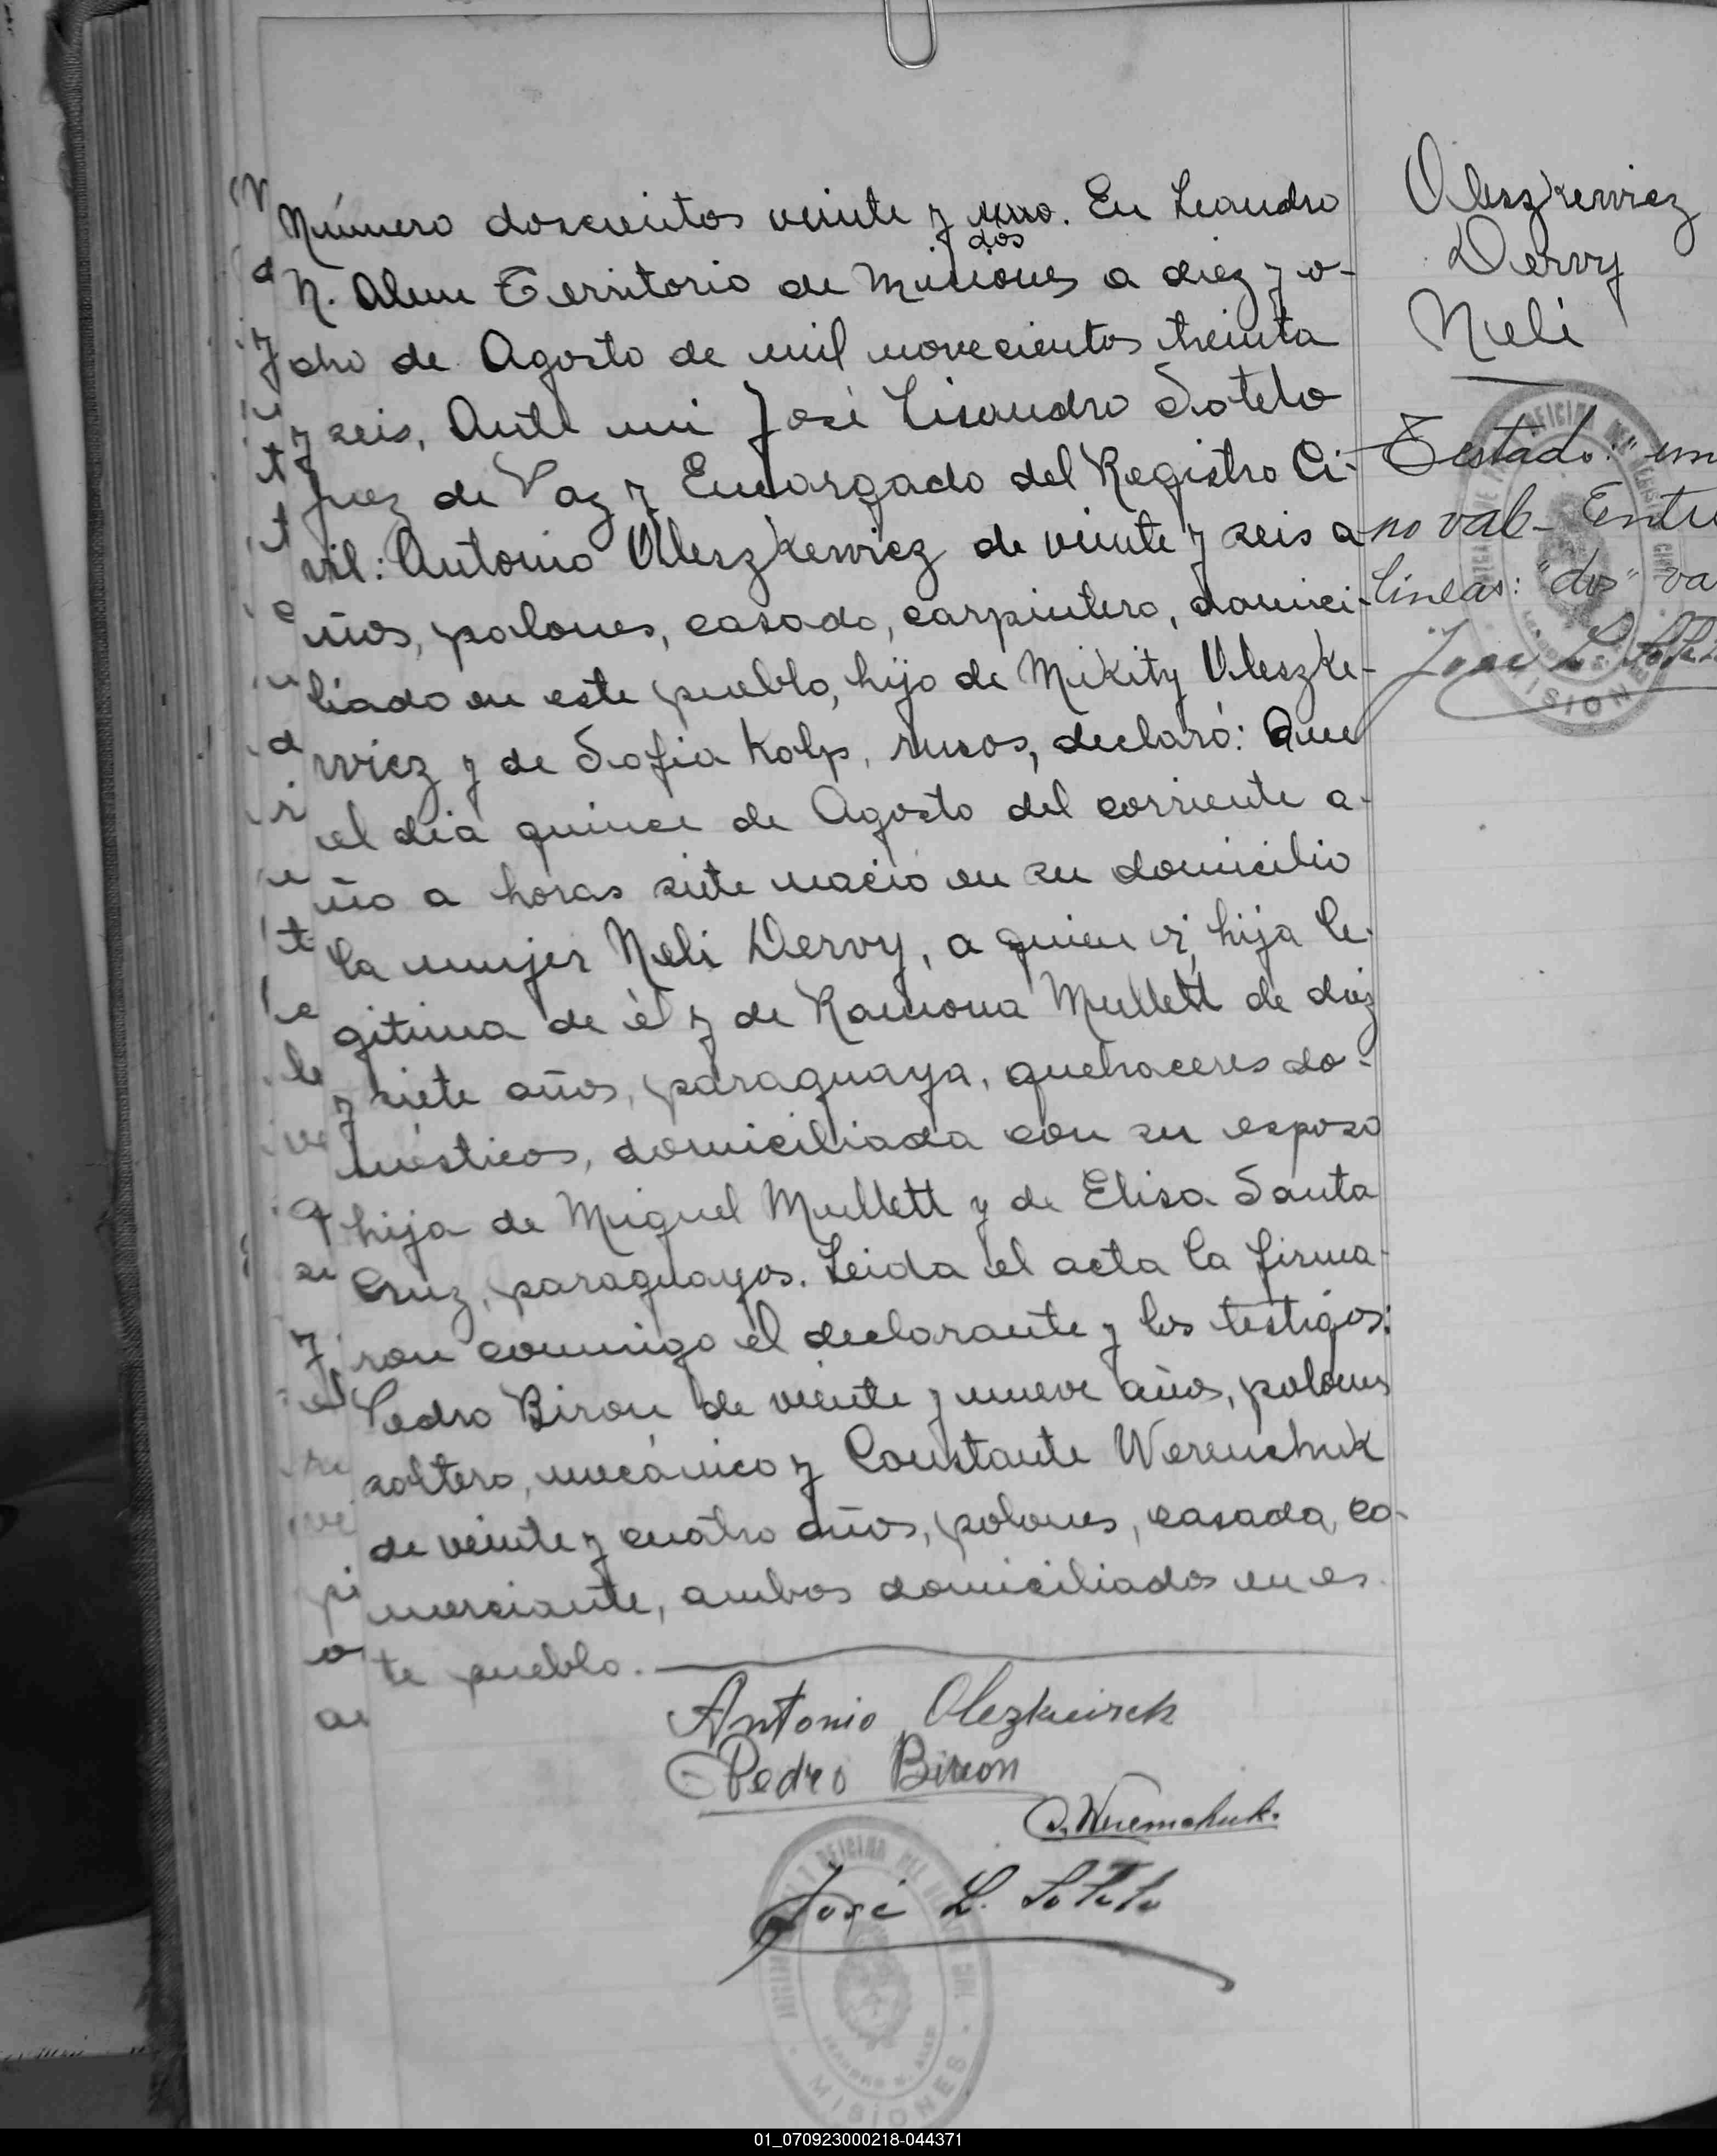 Número doscientos veinte y uno. En Leandro
dos
N. Alem Territorio de Misiones a diez y o-
cho de Agosto de mil novecientos treinta
y seis, Ante mi José Lisandro Sotelo
Juez de Paz y Encargado del Registro Ci-
vil: Antonio Oleszkewicz de veinte y seis a
ños, polones, casado, carpintero, domici-
liado en este pueblo, hijo de Mikity Oleszke-
wicz y de Sofia Kolp, rusos, declaró: Que
el dia quince de Agosto del corriente a-
ño a horas siete nació en su domicilio
la mujer Neli Dervy, a quien vi, hija le-
gitima de él y de Ramona Mullett de diez
y siete años, paraguaya, quehaceres do-
mésticos, domiciliada con su esposo
hija de Miguel Mullett y de Elisa Santa
Cruz, paraguayos. Leida el acta la firma-
ron conmigo el declarante y los testigos:
Pedro Biron de veinte y nueve años, polones
soltero, mecánico y Constante Weremchuk
de veinte y cuatro años, polones, casado, co-
merciante, ambos domiciliados en es-
te pueblo.
Antonio Olezkeirek
Pedro Biron
C. Weremchuk.
José L. Sotelo
MISIONES
Oleszkewicz
Dervy
Neli
Testado: "un
no vale- Entre
lineas: "dos" va
José L. Sotel
MISION
01_070923000218-044371